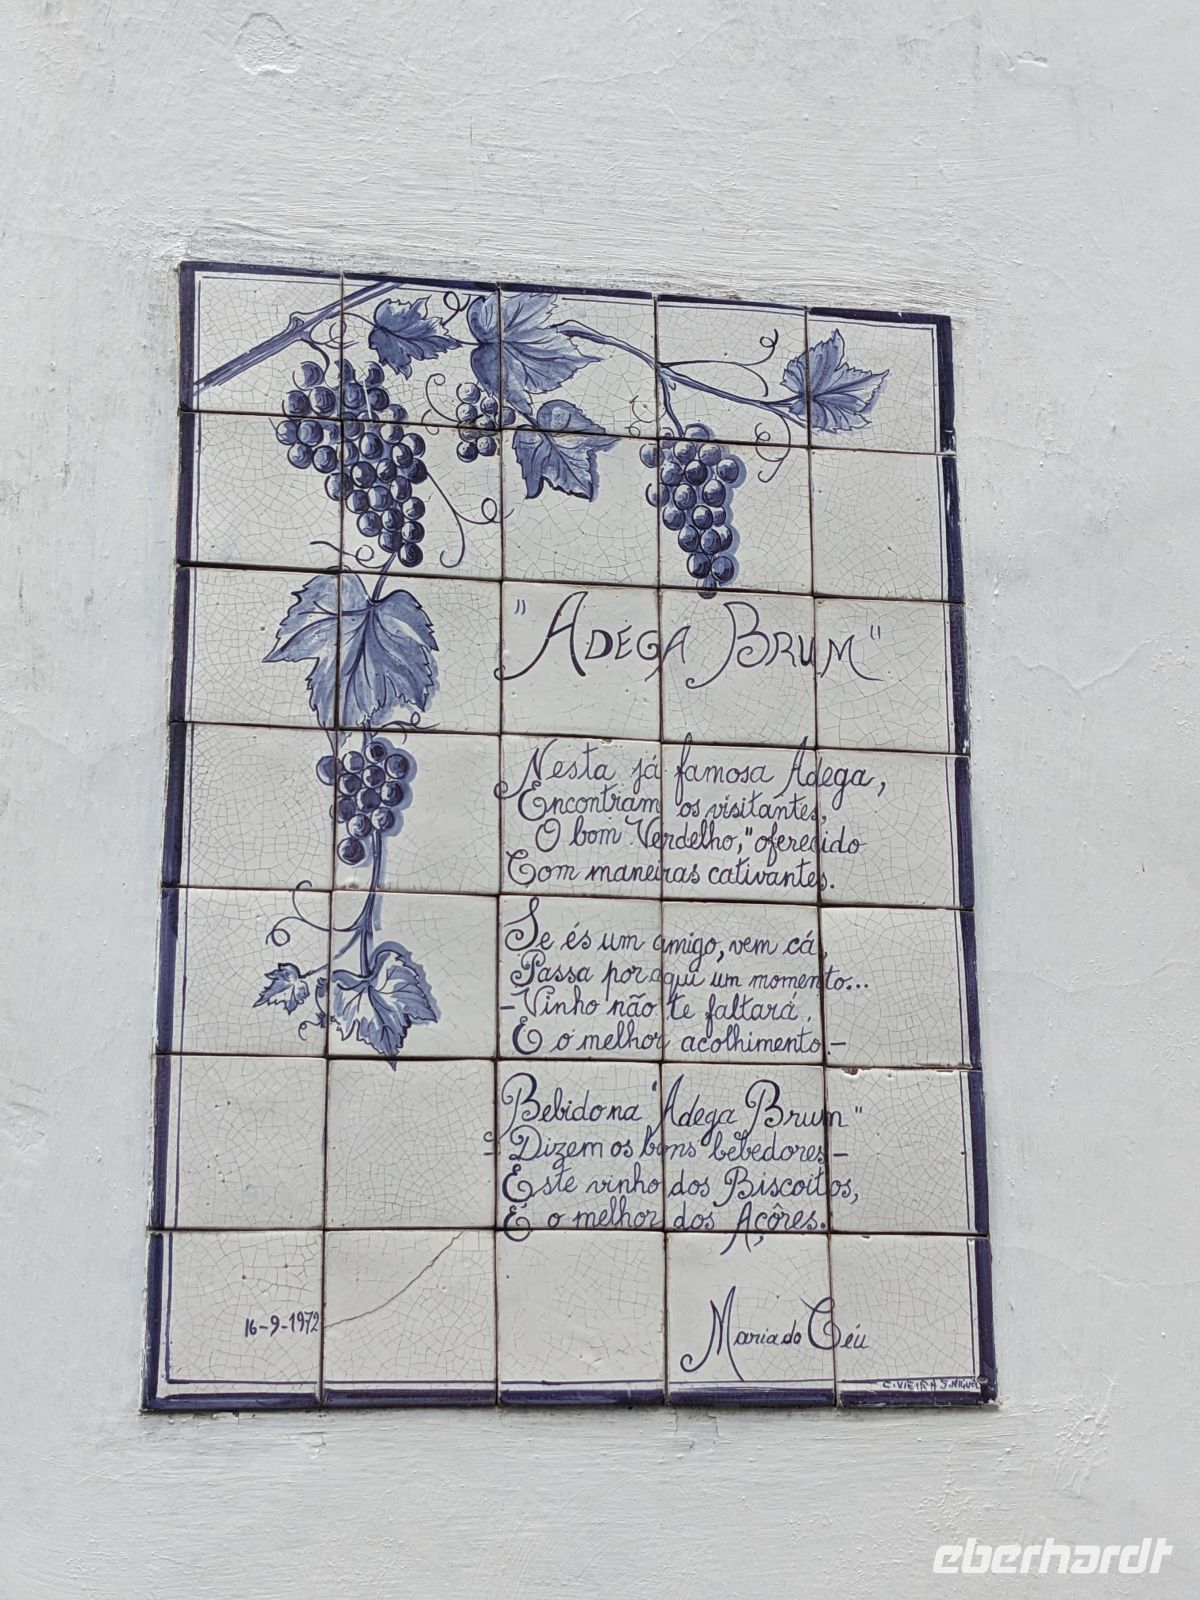 "ADEGA BRUM"
Nesta já famosa Adega,
Encontram os visitantes,
O bom "Verdelho," oferecido
Com maneiras cativantes.
Se és um amigo, vem cá,
Passa por aqui um momento...
-Vinho não te faltará,
E o melhor acolhimento.-
Bebido na "Adega Brum"
- Dizem os bons bebedores -
Este vinho dos Biscoitos,
É o melhor dos Açôres.
16-9-1972
Maria do Céu
C. VIEIRA S. MIGUEL
eberhardt